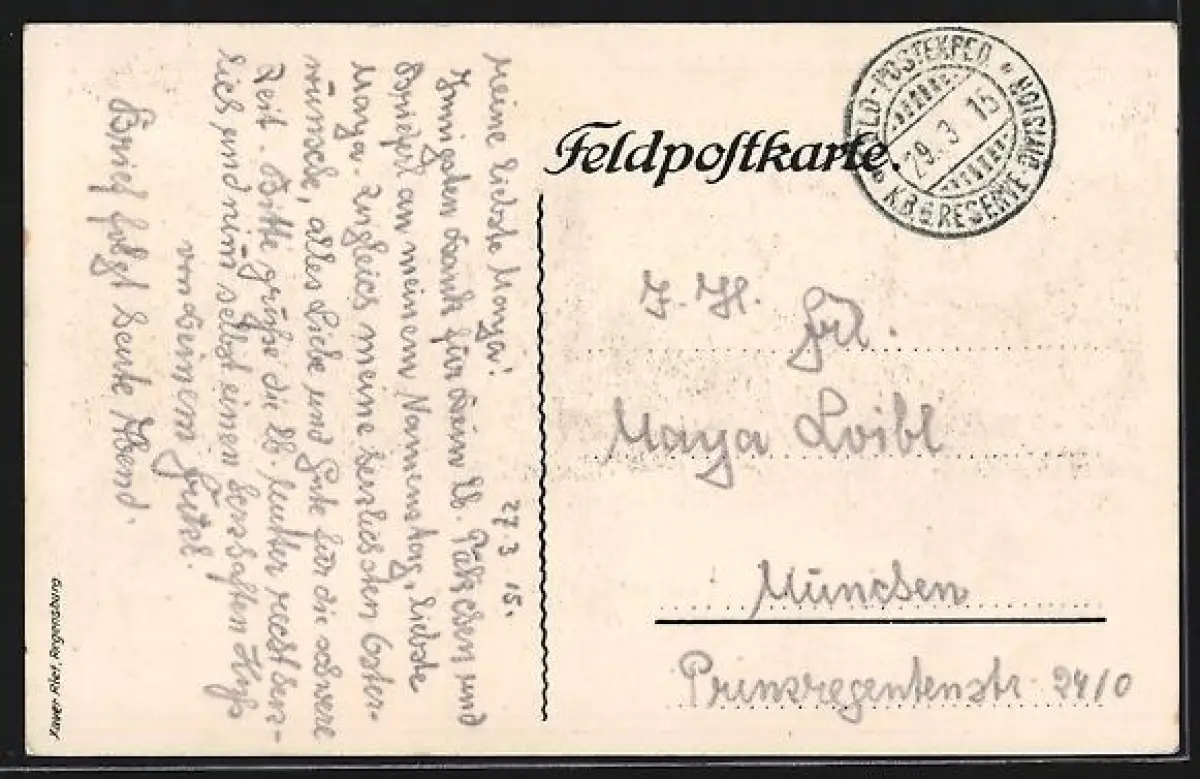 Feldpostkarte.
FELD-POSTEXPED.
K.B. 6 RESERVE-DIVISION
29. 3. 15
27. 3. 15.
Meine liebste Maya!
Innigsten Dank für Dein lb. Päkchen und
Brieferl an meinem Namenstag, liebste
Maya. Zugleich meine herzlichsten Oster-
wünsche, alles Liebe und Gute für die schwere
Zeit. Bitte grüße die lb. Mutter recht herz-
lich und nim selbst einen herzhaften Kuß
von Deinem Fritzl.
Brief folgt heute Abend.
I. H. Frl.
Maya Loibl
München
Prinzregentenstr 24/0
Xaver Rief, Regensburg.